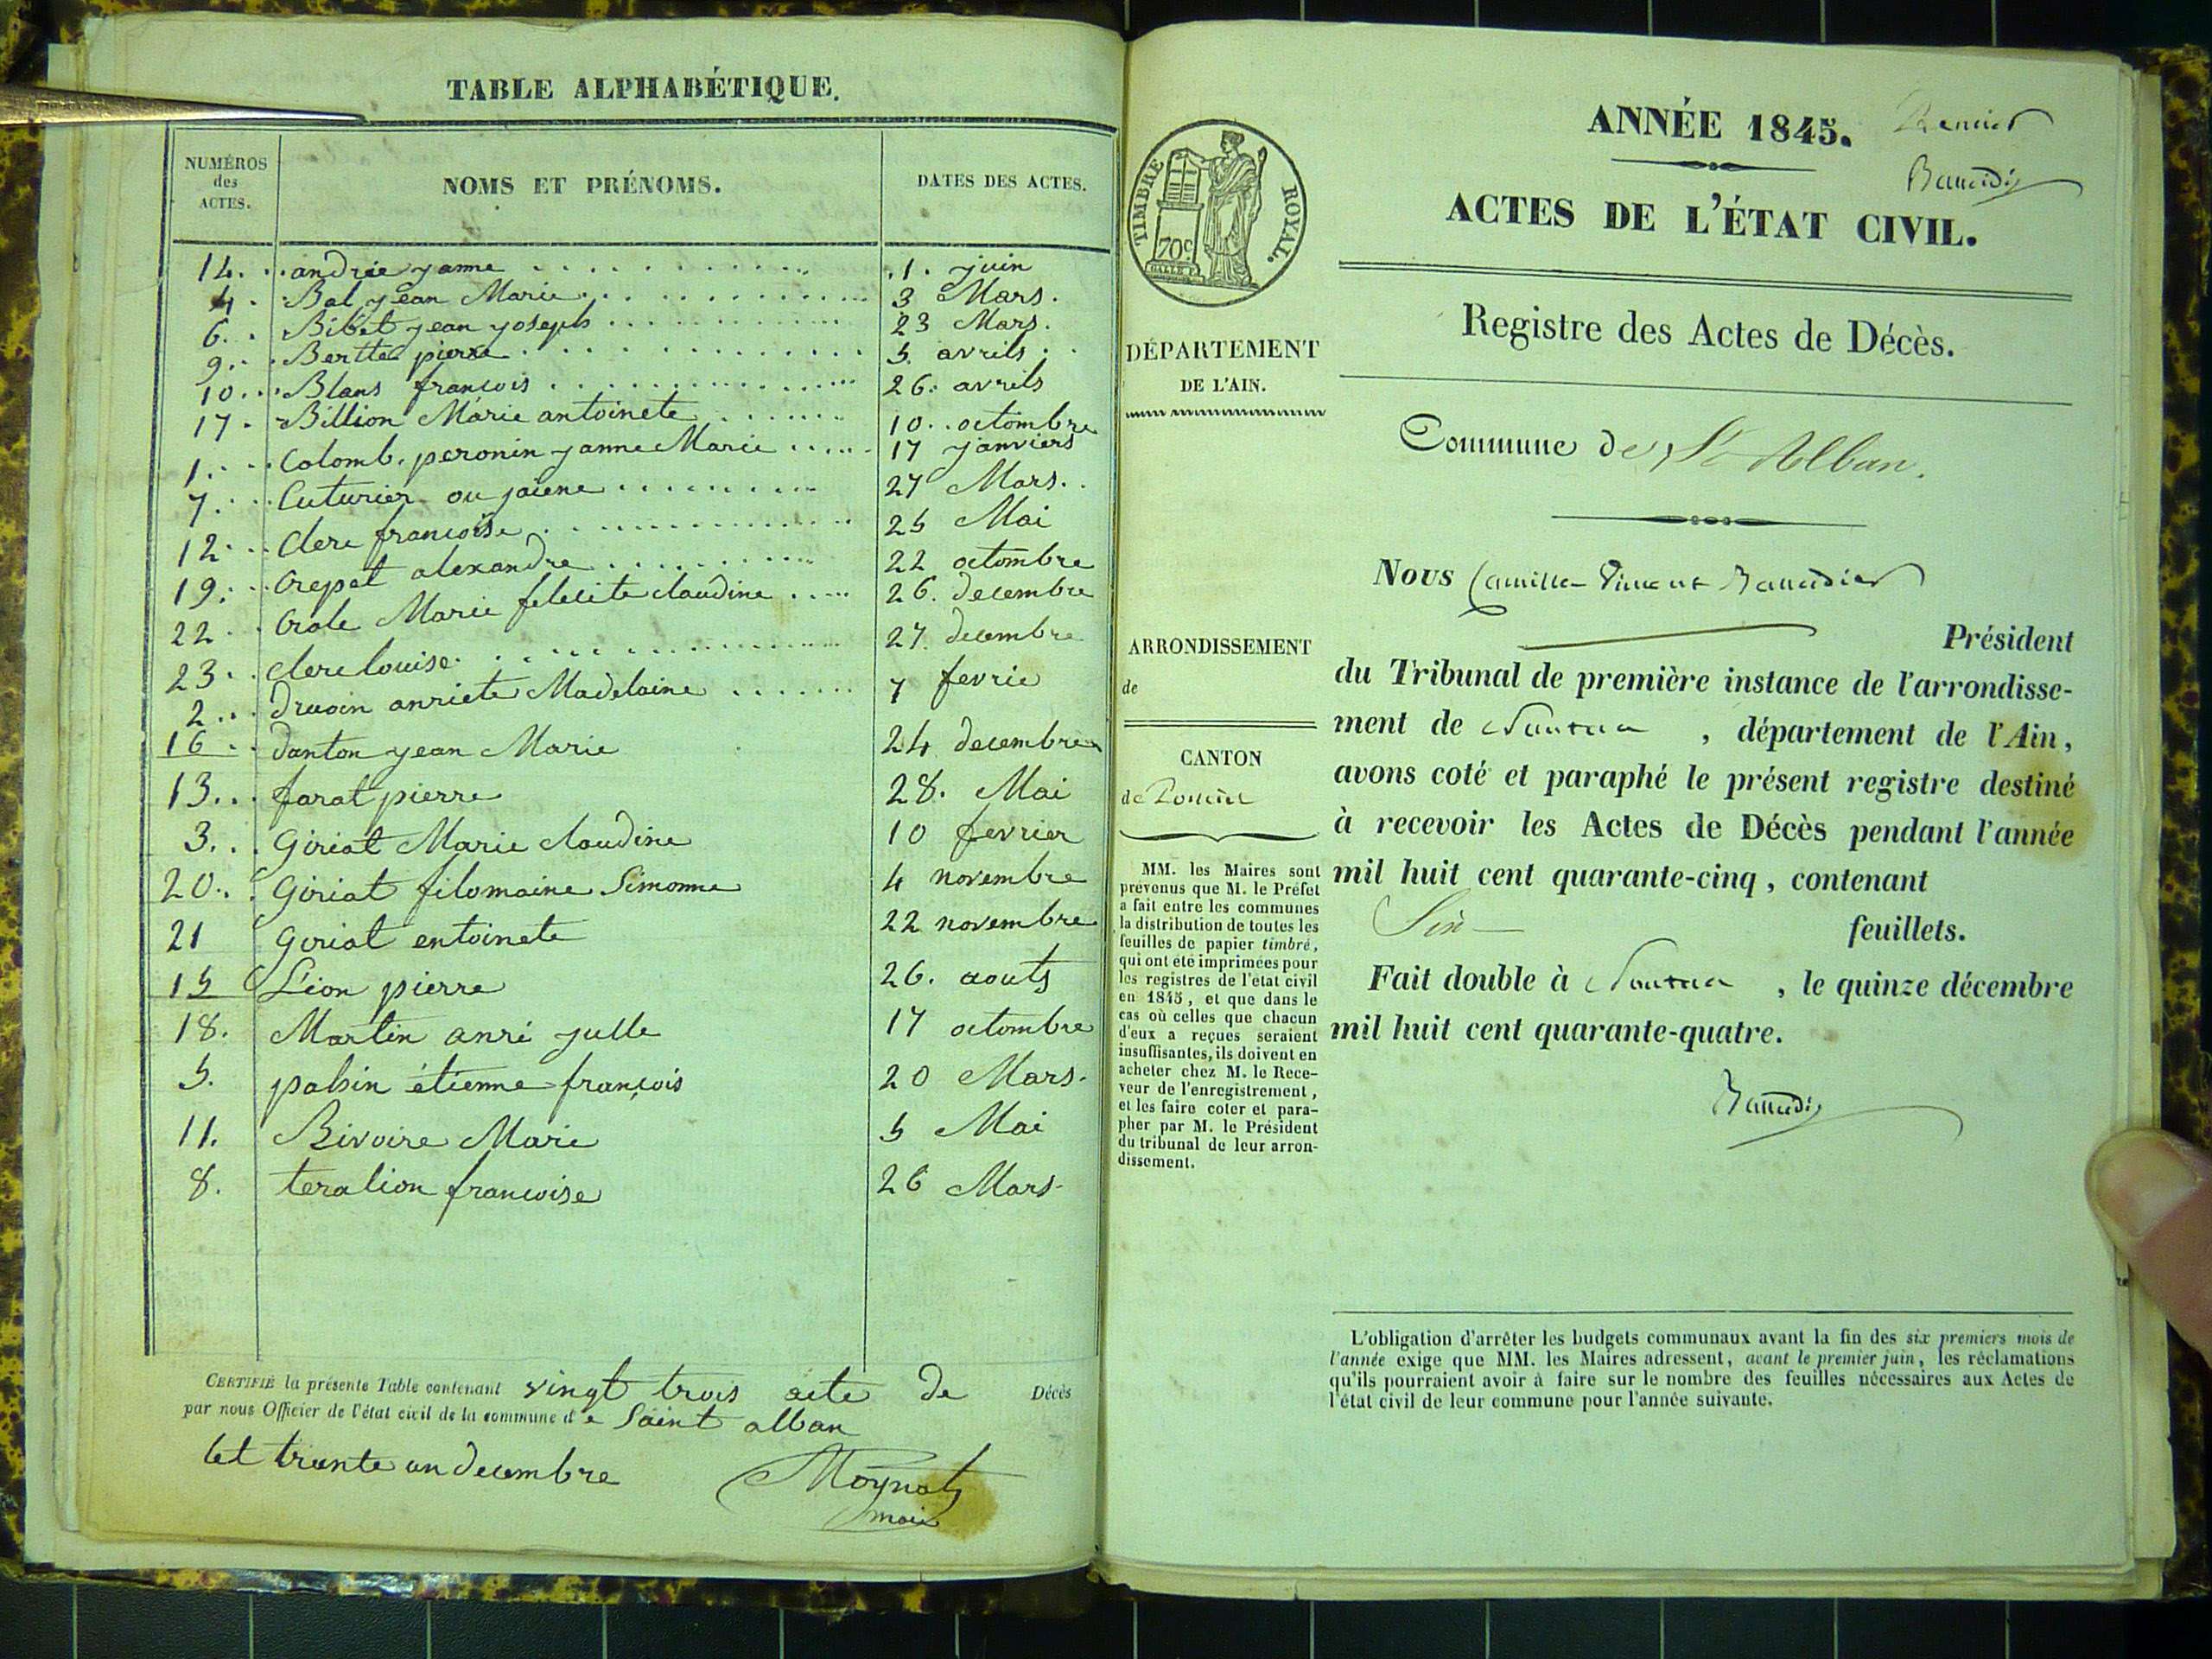 TABLE ALPHABÉTIQUE.
NUMÉROS des ACTES. NOMS ET PRÉNOMS. DATES DES ACTES.
14. andrée janne 1. juin
4. Bal jean Marie 3 Mars.
6. Bibet jean joseph 23 Mars.
9. Berttet pierre 5. avrils
10. Blans francois 26. avrils
17. Billion Marie antoinete 10. octombre
1. Colomb. peronin janne Marie 17 janviers
7. Cuturier ou jaiene 27 Mars.
12. Clere francoise 25 Mai
19. Crepet alexandre 22 octombre
22. Crale Marie felecite claudine 26. decembre
23. clere louise. 27. decembre
2. druoin anriete Madelaine 7 fevrie
16. danton jean Marie 24 decembre
13. farat pierre 28. Mai
3. Giriat Marie claudine 10 fevrier
20. Giriat filomaine Simonne 4 novembre
21 Giriat entoinete 22 novembre
15 Léon pierre 26. aouts
18. Martin anri julle 17 octombre
5. pabsin étienne françois 20 Mars.
11. Rivoire Marie 5 Mai
8. teralion francoise 26 Mars
CERTIFIÉ la présente Table contenant vingt trois acte de Décès
par nous Officier de l'état civil de la commune de Saint alban
let trente un decembre
Moynat
maire
TIMBRE ROYAL.
70c
ANNÉE 1845.
ACTES DE L'ÉTAT CIVIL.
Registre des Actes de Décès.
DÉPARTEMENT
DE L'AIN.
Commune de St Alban.
ARRONDISSEMENT
de
CANTON
de Poncin
MM. les Maires sont
prévenus que M. le Préfet
a fait entre les communes
la distribution de toutes les
feuilles de papier timbré,
qui ont été imprimées pour
les registres de l'état civil
en 1845, et que dans le
cas où celles que chacun
d'eux a reçues seraient
insuffisantes, ils doivent en
acheter chez M. le Rece-
veur de l'enregistrement,
et les faire coter et para-
pher par M. le Président
du tribunal de leur arron-
dissement.
Nous Camille Vincent
Président
du Tribunal de première instance de l'arrondisse-
ment de Nantua, département de l'Ain,
avons coté et paraphé le présent registre destiné
à recevoir les Actes de Décès pendant l'année
mil huit cent quarante-cinq, contenant
Six feuillets.
Fait double à Nantua, le quinze décembre
mil huit cent quarante-quatre.
L'obligation d'arrêter les budgets communaux avant la fin des six premiers mois de
l'année exige que MM. les Maires adressent, avant le premier juin, les réclamations
qu'ils pourraient avoir à faire sur le nombre des feuilles nécessaires aux Actes de
l'état civil de leur commune pour l'année suivante.